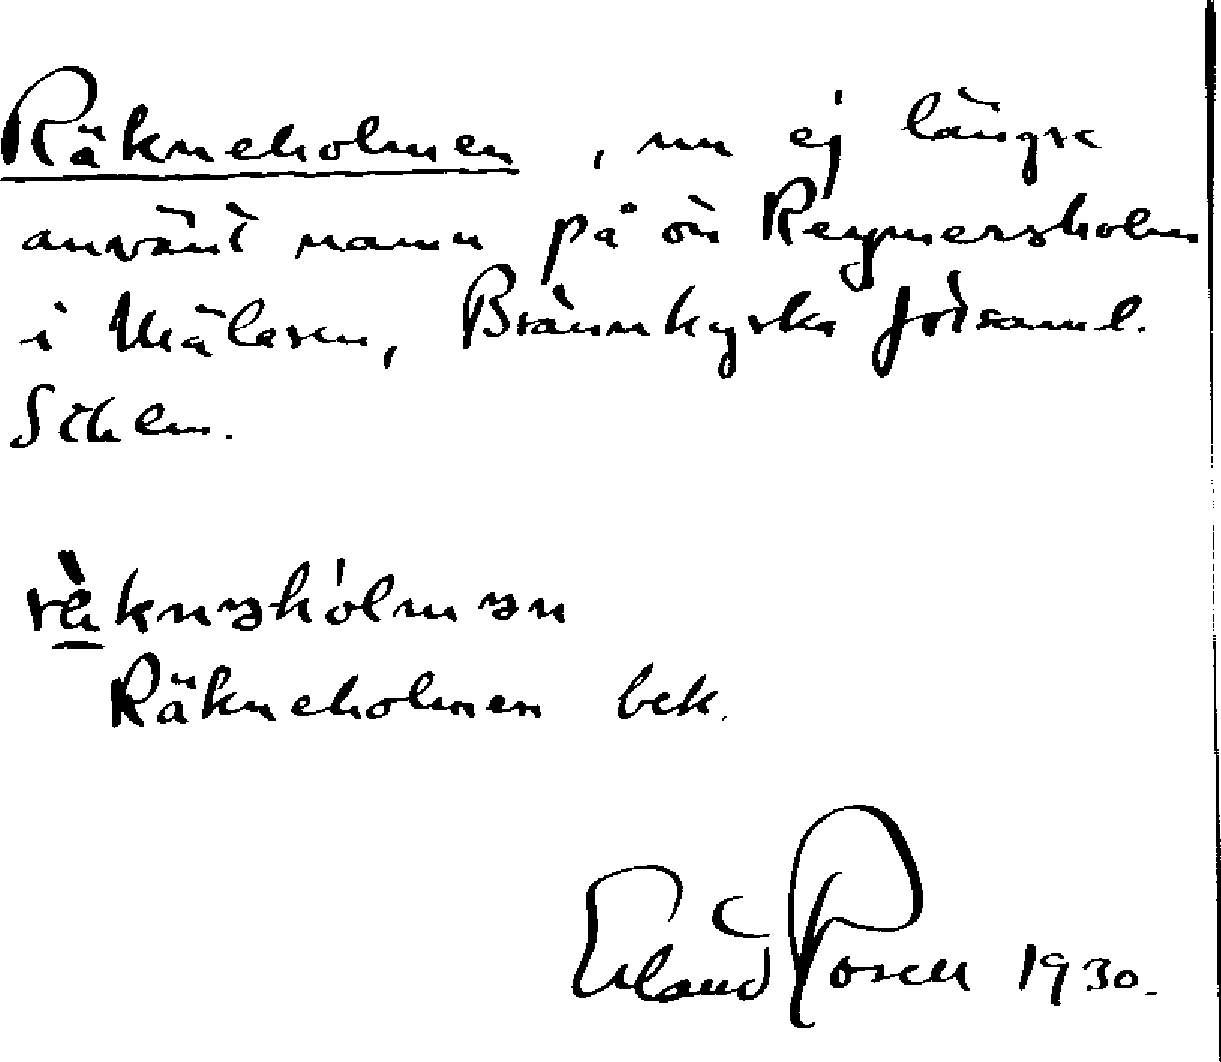 Räkneholmen, nu ej längre
använt namn på ön Reymersholm
i Mälaren, Brännkyrka förssaml.
Sthlm.
Räkneholmen bek.
Erland Rosell 1930.